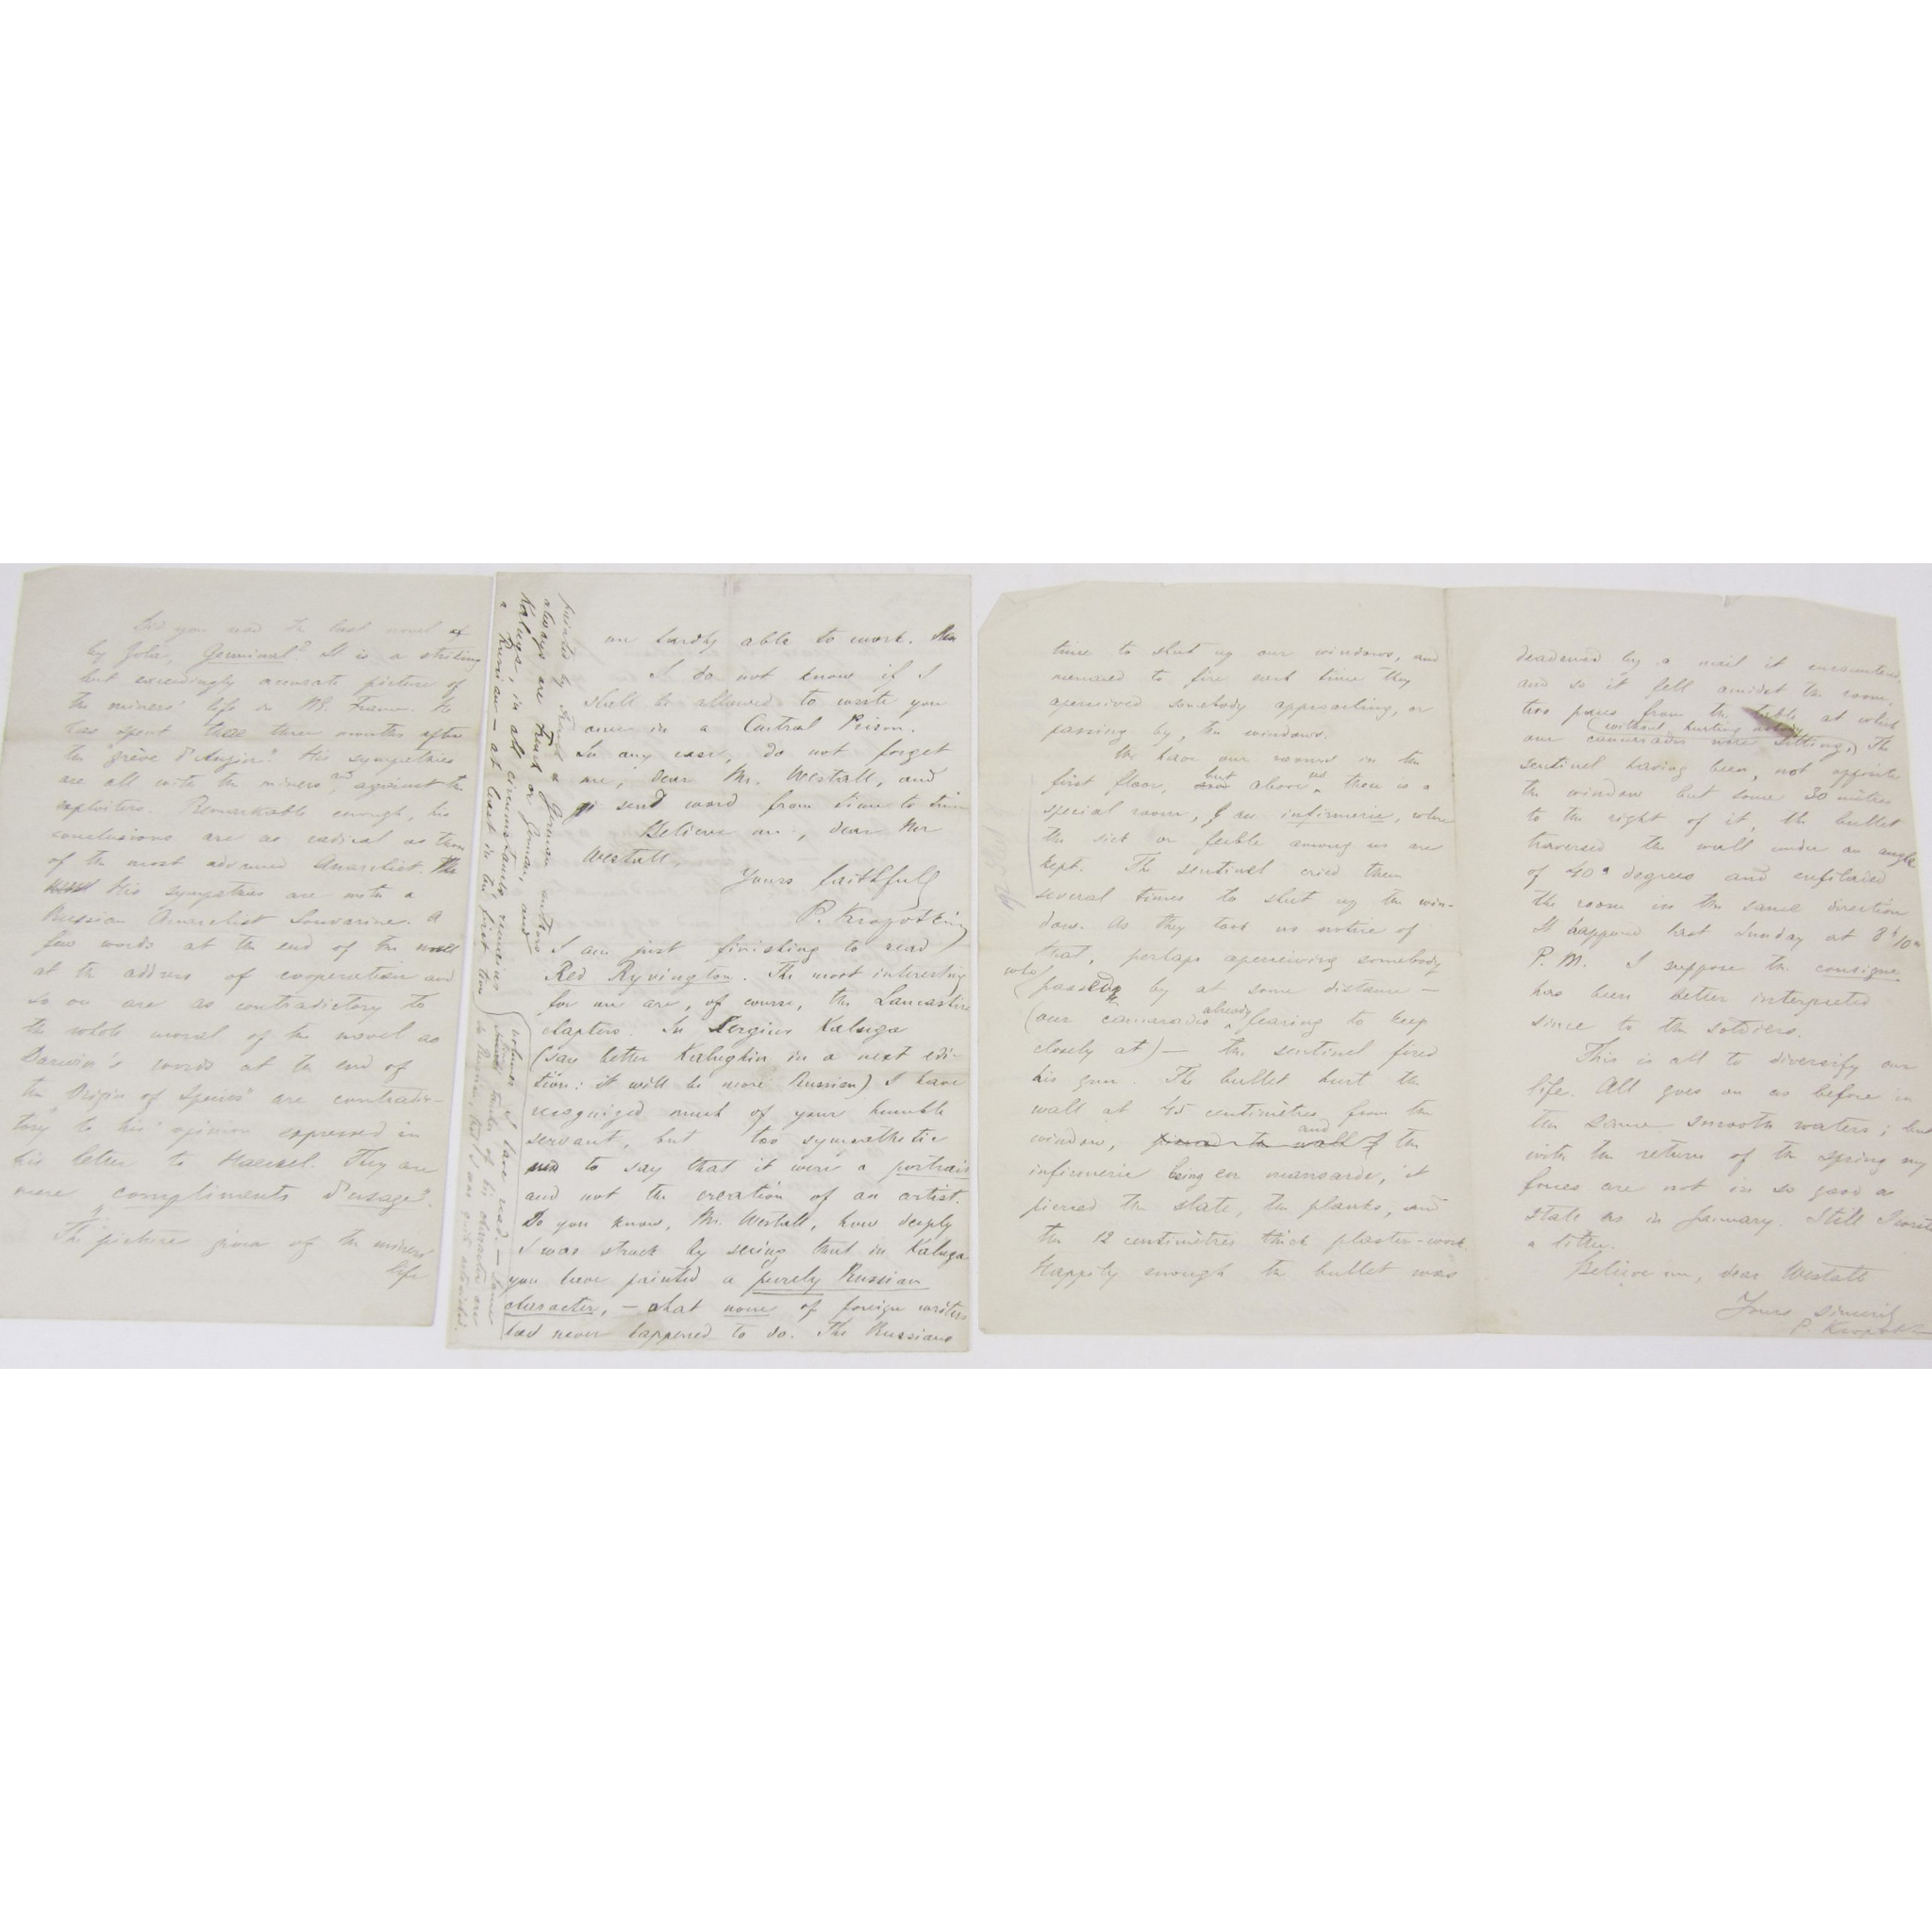 Did you read the last novel of
by Zola, Germinal? It is a striking
but exceedingly accurate picture of
the miners' life in N. France. He
has spent there three months after
the "grève d'Anzin". His sympathies
are all with the miners, and against the
exploiters. Remarkable enough, his
conclusions are as radical as those
of the most advanced Anarchist. The
His sympathies are with a
Russian Anarchist Souvarine. A
few words at the end of the novel
at the address of cooperation and
so on are as contradictory to
the whole moral of the novel as
Darwin's words at the end of
the "Origin of Species" are contradic-
tory to his opinion expressed in
his letter to Haeckel. They are
mere "compliments d'usage".
The picture given of the miners'
life
me hardly able to work.
I do not know if I
shall be allowed to write you
once in a Central Prison.
In any case, do not forget
me, dear Mr. Westall, and
send word from time to time
Believe me, dear Mr
Westall,
Yours faithfull
P. Kropotkin
I am just finishing to read
Red Ryvington. The most interesting
for me are, of course, the Lancashire
chapters. In Sergius Kaluga
(say better Kalughin in a next edi-
tion: it will be more Russian) I have
recognized much of your humble
servant, but too sympathetic
to say that it were a portrait
and not the creation of an artist.
Do you know, Mr. Westall, how deeply
I was struck by seeing that in Kaluga
you have painted a purely Russian
character, – what none of foreign writers
had never happened to do. The Russians
painted by French & German authors
always are French or German, and
Kaluga, in all circumstances, remains
a Russian – at least in the first two
volumes I have read. – Some
touches of his character are
so Russian, that I was quite astonished.
time to shut up our windows, and
menaced to fire each time they
aperceived somebody approaching, or
passing by, the windows.
We have our rooms in the
first floor, but above us there is a
special room, an infirmerie, where
the sick or feeble among us are
kept. The sentinel cried them
several times to shut up the win-
dow. As they took no notice of
that, perhaps aperceiving somebody
who passed by at some distance –
(our camarades already fearing to keep
closely at) – the sentinel fired
his gun. The bullet hurt the
wall at 45 centimètres from the
window, pierced the wall & and the
infirmerie being en mansarde, it
pierced the slate, the planks, and
the 12 centimètres thick plaster-work.
Happily enough the bullet was
deadened by a nail it encountered
and so it fell amidst the room,
two paces from the table at which
our camarades were sitting, (without hurting nobody). The
sentinel having been, not opposite
the window but some 30 mètres
to the right of it, the bullet
traversed the wall under an angle
of 40° degrees and enfiladed
the room in the same direction
It happened last Sunday at 8h 10m
P.M. I suppose the consigne
has been better interpreted
since to the soldiers.
This is all to diversify our
life. All goes on as before in
the same smooth waters; but
with the return of the spring my
forces are not in so good a
state as in January. Still I work
a little.
Believe me, dear Westall
Yours sincerily
P. Kropotkin